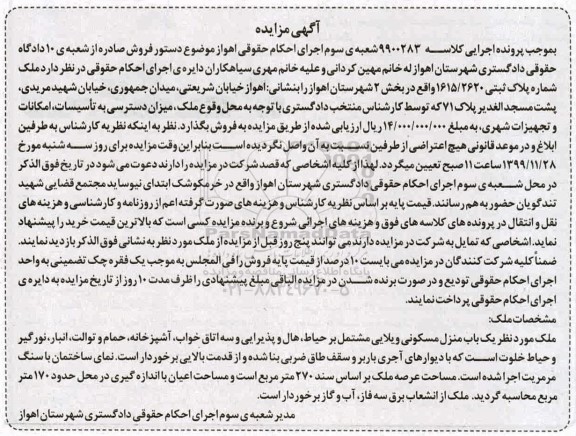 آگهی مزایده
بموجب پرونده اجرایی کلاسه ۹۹۰۰۲۸۳ شعبه ی سوم اجرای احکام حقوقی اهواز موضوع دستور فروش صادره از شعبه ی ۱۰ دادگاه
حقوقی دادگستری شهرستان اهواز له خانم مهین کردانی و علیه خانم مهری سیاهکاران دایره ی اجرای احکام حقوقی در نظر دارد ملک
شماره پلاک ثبتی ۱۶۱۵/۲۶۲۰ واقع در بخش ۲ شهرستان اهواز را بنشانی: اهواز خیابان شریعتی، میدان جمهوری، خیابان شهید مریدی،
پشت مسجد الغدیر پلاک ۷۱ که توسط کارشناس منتخب دادگستری با توجه به محل وقوع ملک، میزان دسترسی به تأسیسات، امکانات
و تجهیزات شهری، به مبلغ ۱۴/۰۰۰/۰۰۰/۰۰۰ ریال ارزیابی شده از طریق مزایده به فروش بگذارد. نظر به اینکه نظریه کارشناس به طرفین
ابلاغ و در موعد قانونی هیچ اعتراضی از طرفین نسبت به آن واصل نگردیده است بنابراین وقت مزایده برای روز سه شنبه مورخ
۱۳۹۹/۱۱/۲۸ ساعت ۱۱ صبح تعیین میگردد. لهذا از کلیه اشخاصی که قصد شرکت در مزایده را دارند دعوت می شود در تاریخ فوق الذکر
در محل شعبه ی سوم اجرای احکام حقوقی دادگستری شهرستان اهواز واقع در خرمکوشک ابتدای نیوساید مجتمع قضایی شهید
تندگویان حضور به هم رسانند. قیمت پایه بر اساس نظریه کارشناس و هزینه های صورت گرفته اعم از روزنامه و کارشناسی و هزینه های
نقل و انتقال در پرونده های کلاسه های فوق و هزینه های اجرائی شروع و برنده مزایده کسی است که بالاترین قیمت خرید را پیشنهاد
نماید. اشخاصی که تمایل به شرکت در مزایده دارند می توانند پنج روز قبل از مزایده از ملک مورد نظر به نشانی فوق الذکر بازدید نمایند.
ضمناً کلیه شرکت کنندگان در مزایده می بایست ۱۰ درصد از قیمت پایه فروش را فی المجلس به موجب یک فقره چک تضمینی به واحد
اجرای احکام حقوقی تودیع و در صورت برنده شدن در مزایده الباقی مبلغ پیشنهادی را ظرف مدت ۱۰ روز از تاریخ مزایده به دایره ی
اجرای احکام حقوقی پرداخت نمایند.
مشخصات ملک:
ملک مورد نظر یک باب منزل مسکونی ویلایی مشتمل بر حیاط، هال و پذیرایی و سه اتاق خواب، آشپزخانه، حمام و توالت، انبار، نورگیر
و حیاط خلوت است که با دیوارهای آجری باربر و سقف طاق ضربی بنا شده و از قدمت بالایی برخوردار است. نمای ساختمان با سنگ
مرمریت اجرا شده است. مساحت عرصه ملک بر اساس سند ۲۷۰ متر مربع است و مساحت اعیان با اندازه گیری در محل حدود ۱۷۰ متر
مربع محاسبه گردید. ملک از انشعاب برق سه فاز، آب و گاز برخوردار است.
مدیر شعبه ی سوم اجرای احکام حقوقی دادگستری شهرستان اهواز